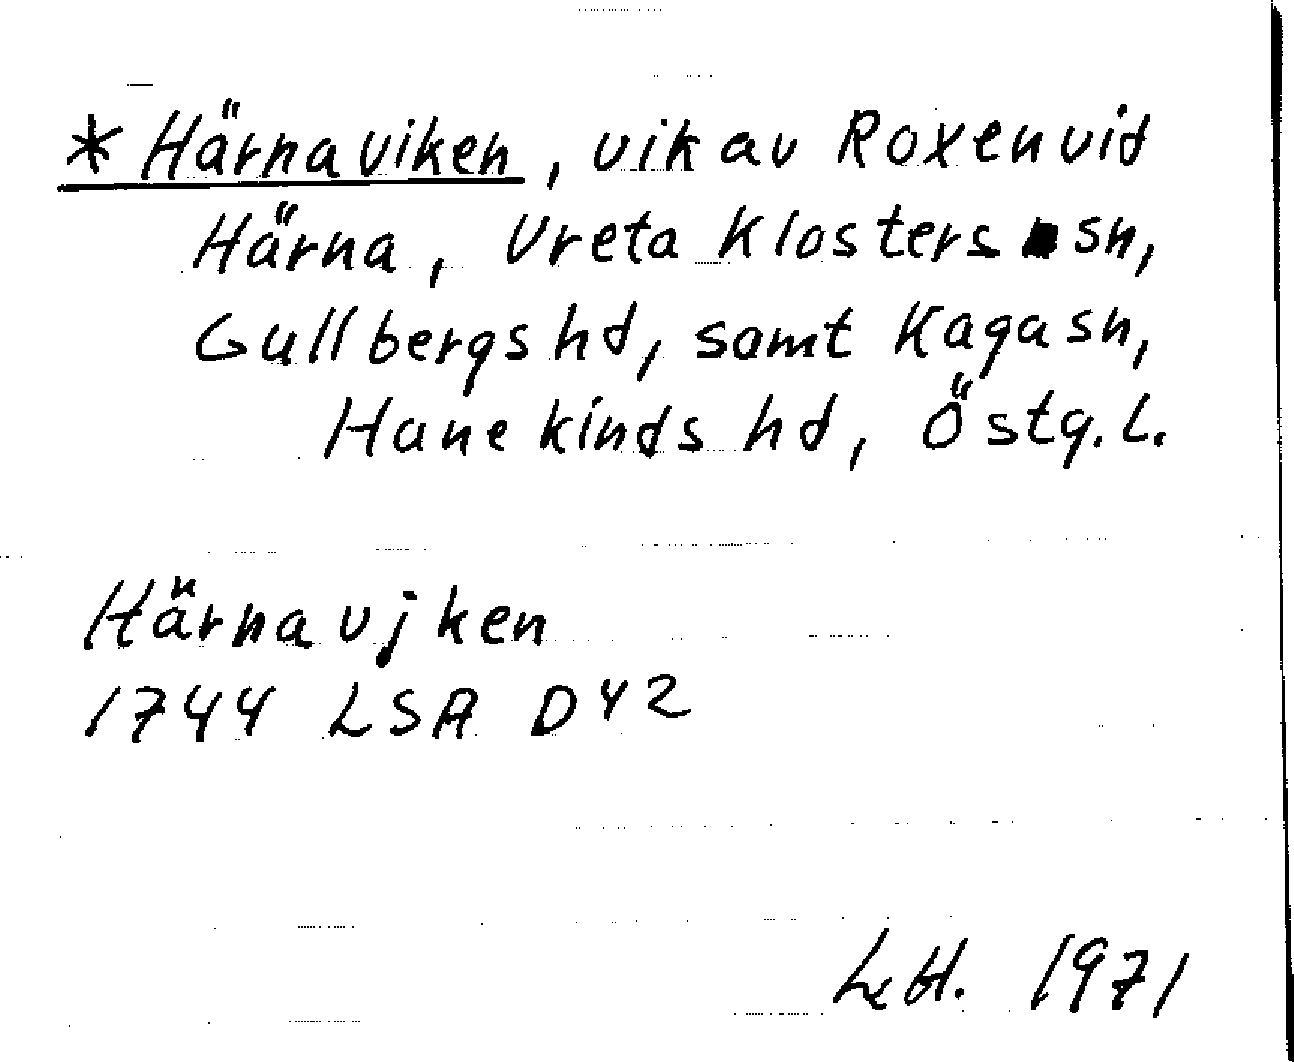 * Härnaviken, vik av Roxen vid
Härna, Vreta Klosters sn,
Gullbergs hd, samt Kaga sn,
Hanekinds hd, Östg. l.
Härnavjken
1744 LSA D42
1971